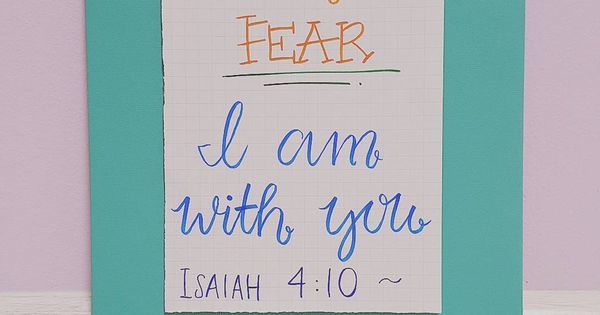 FEAR
I am
with you
ISAIAH 4:10 ~